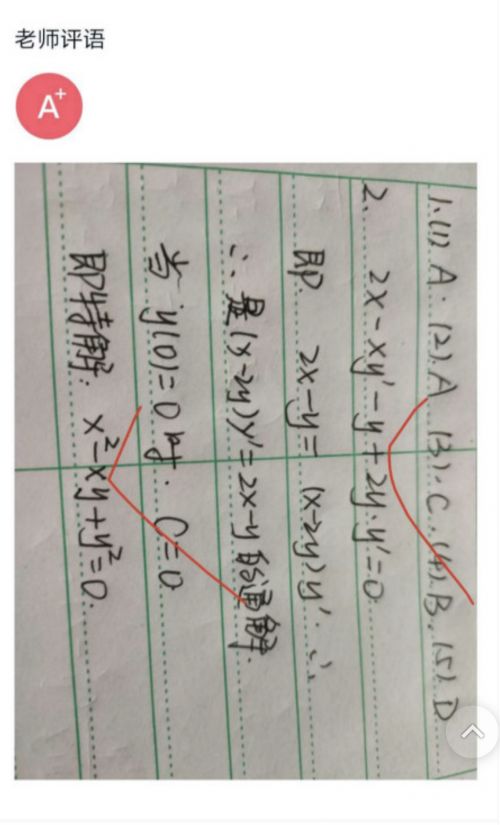 老师评语
A+
1.(1) A. (2).A (3).C.(4).B.(5).D
2. 2x-xy'-y+2y·y'=0
即. 2x-y= (x-2y)y'.
∴是(x-2y)y'=2x-y的通解.
当y(0)=0时. C=0
即特解: x²-xy+y²=0.